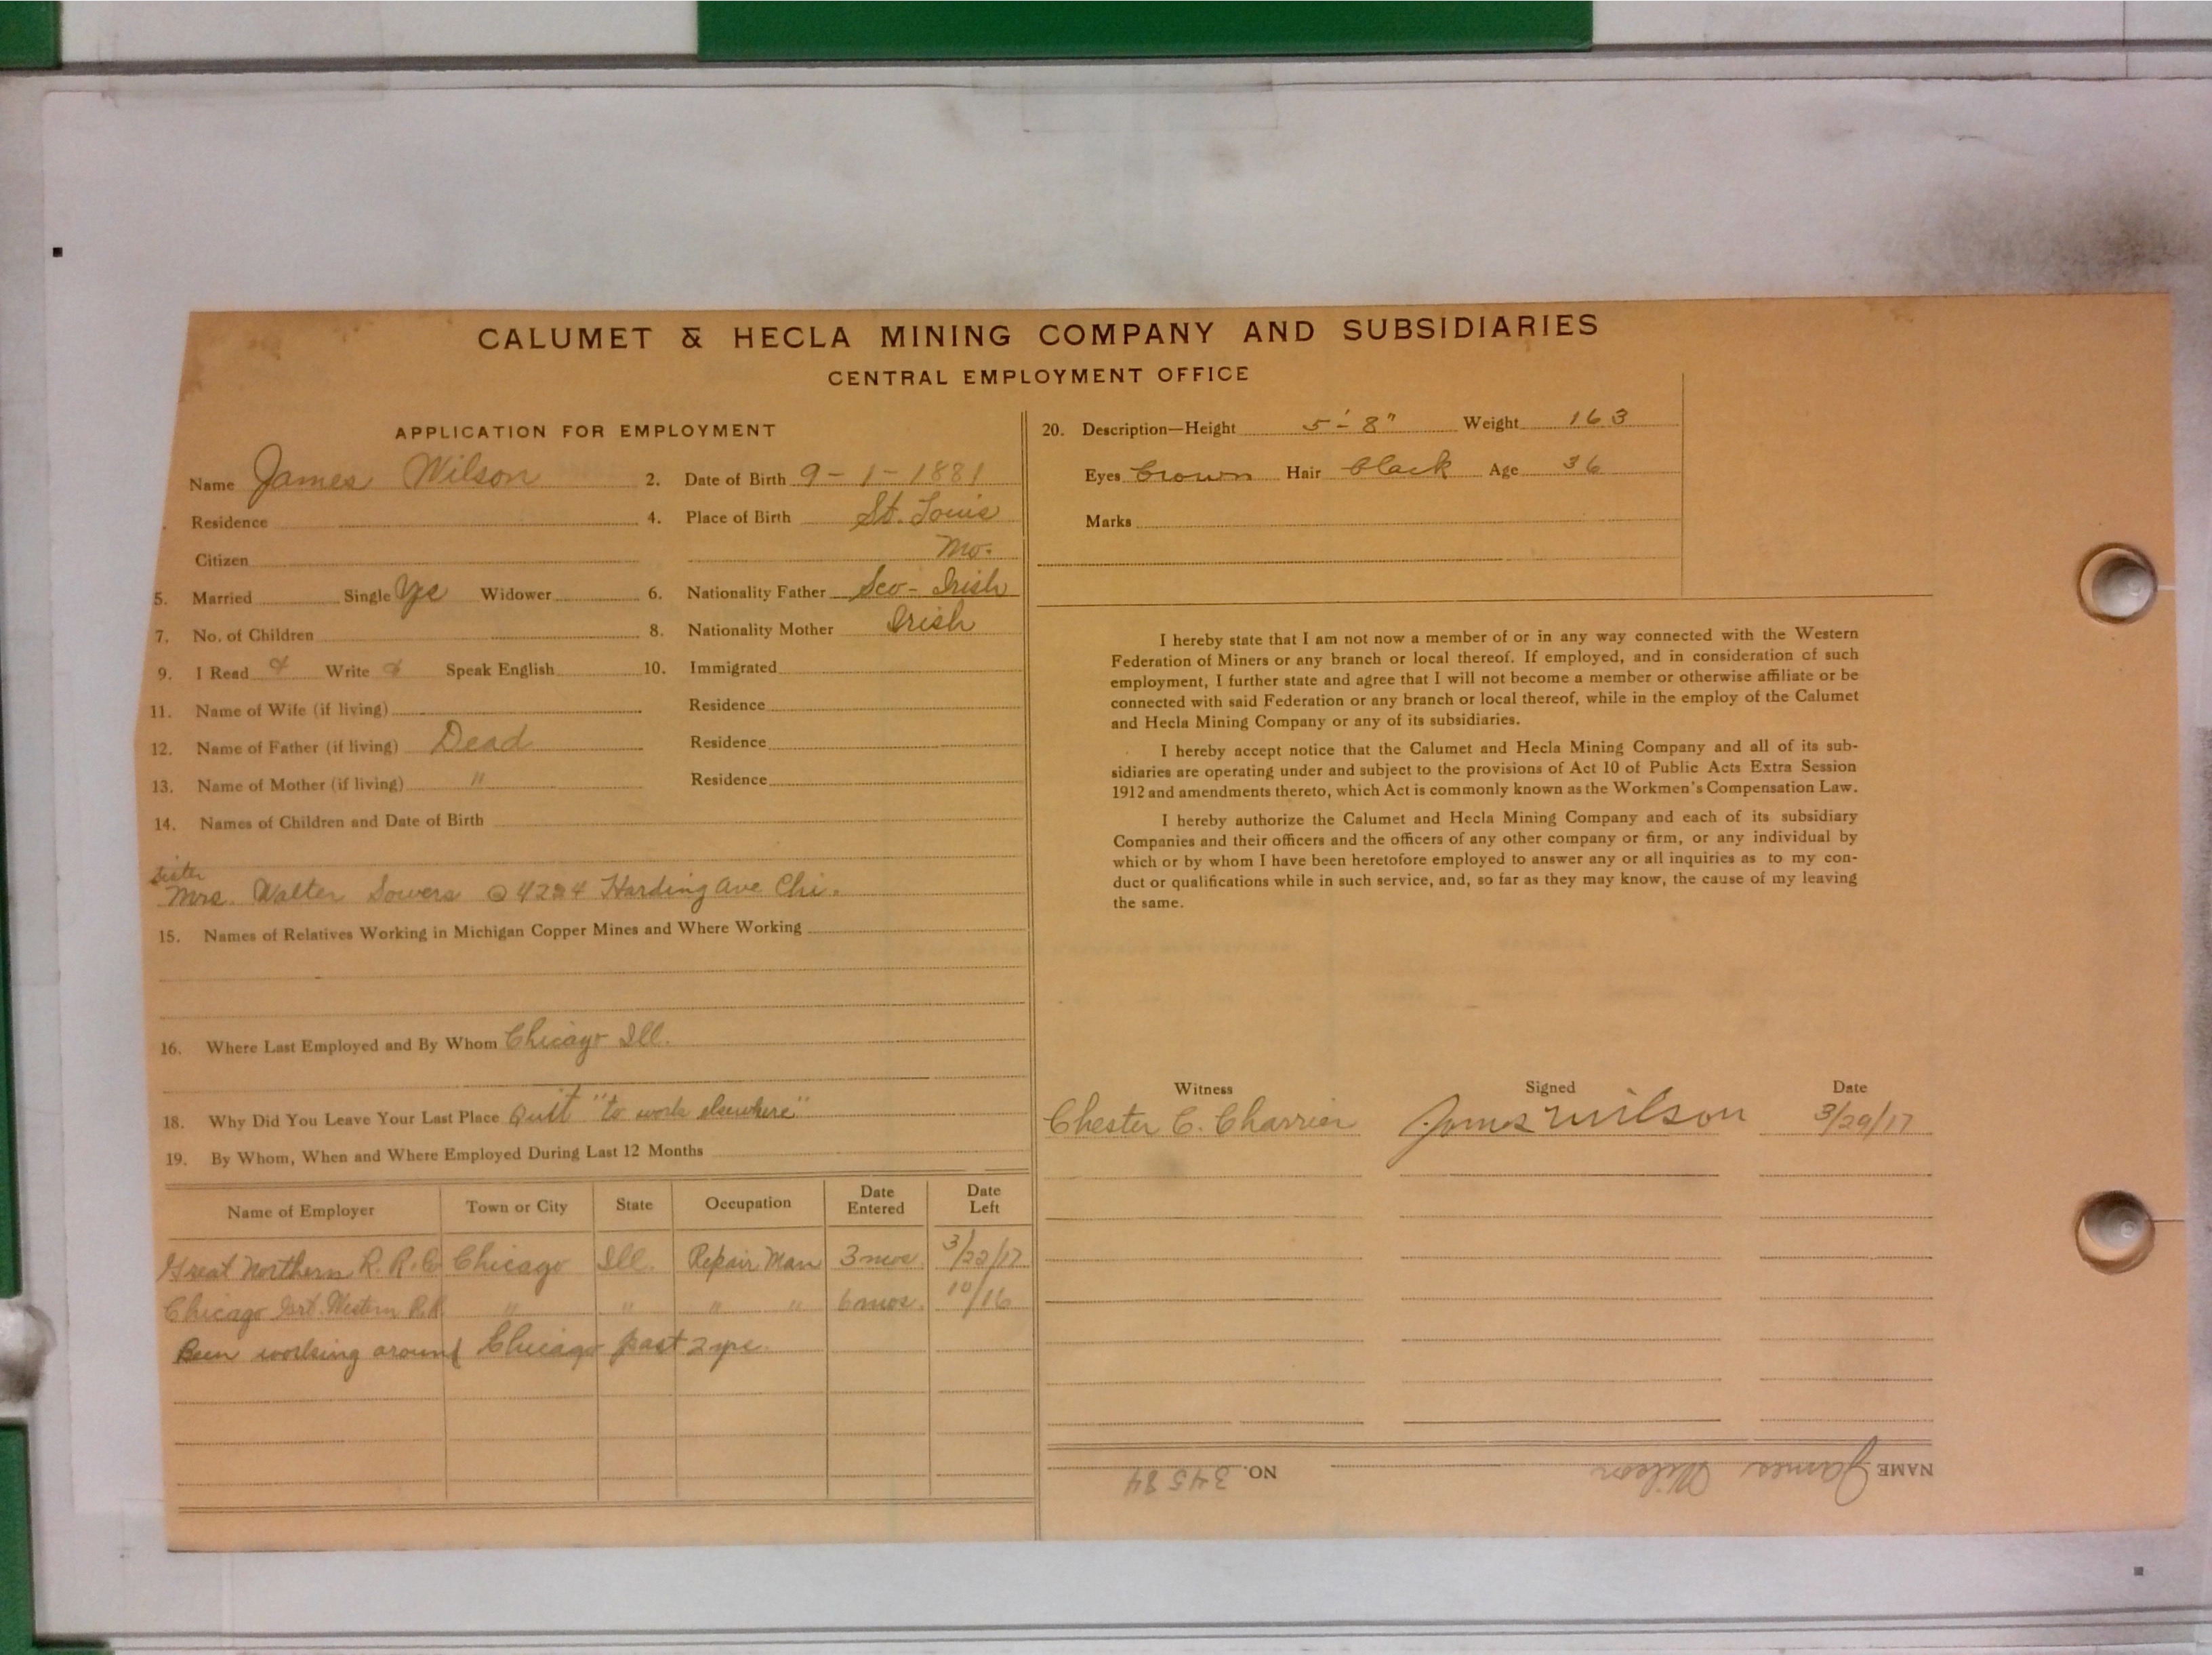 CALUMET & HECLA MINING COMPANY AND SUBSIDIARIES
CENTRAL EMPLOYMENT OFFICE
APPLICATION FOR EMPLOYMENT
Name James Wilson 2. Date of Birth 9-1-1881
Residence 4. Place of Birth St. Louis
Citizen Mo.
5. Married Single Yes Widower 6. Nationality Father Sco-Irish
7. No. of Children 8. Nationality Mother Irish
9. I Read Write Speak English 10. Immigrated
11. Name of Wife (if living) Residence
12. Name of Father (if living) Dead Residence
13. Name of Mother (if living) " Residence
14. Names of Children and Date of Birth
Sister
Mrs. Walter Sowers @ Harding Ave Chi.
15. Names of Relatives Working in Michigan Copper Mines and Where Working
16. Where Last Employed and By Whom Chicago Ill.
18. Why Did You Leave Your Last Place Quit "to work elsewhere"
19. By Whom, When and Where Employed During Last 12 Months
Name of Employer Town or City State Occupation Date Entered Date Left
Great Northern R.R.Co Chicago Ill. Repair Man 3 mos. 3/22/17
Chicago Grt. Western R.R. " " " " 6 mos. 10/16
Been working around Chicago past 2 yrs.
20. Description—Height 5'-8" Weight 163
Eyes brown Hair black Age 36
Marks
I hereby state that I am not now a member of or in any way connected with the Western
Federation of Miners or any branch or local thereof. If employed, and in consideration of such
employment, I further state and agree that I will not become a member or otherwise affiliate or be
connected with said Federation or any branch or local thereof, while in the employ of the Calumet
and Hecla Mining Company or any of its subsidiaries.
I hereby accept notice that the Calumet and Hecla Mining Company and all of its sub-
sidiaries are operating under and subject to the provisions of Act 10 of Public Acts Extra Session
1912 and amendments thereto, which Act is commonly known as the Workmen's Compensation Law.
I hereby authorize the Calumet and Hecla Mining Company and each of its subsidiary
Companies and their officers and the officers of any other company or firm, or any individual by
which or by whom I have been heretofore employed to answer any or all inquiries as to my con-
duct or qualifications while in such service, and, so far as they may know, the cause of my leaving
the same.
Witness Signed Date
Chester C. Charrier James Wilson 3/29/17
NAME James Wilson NO. 34584